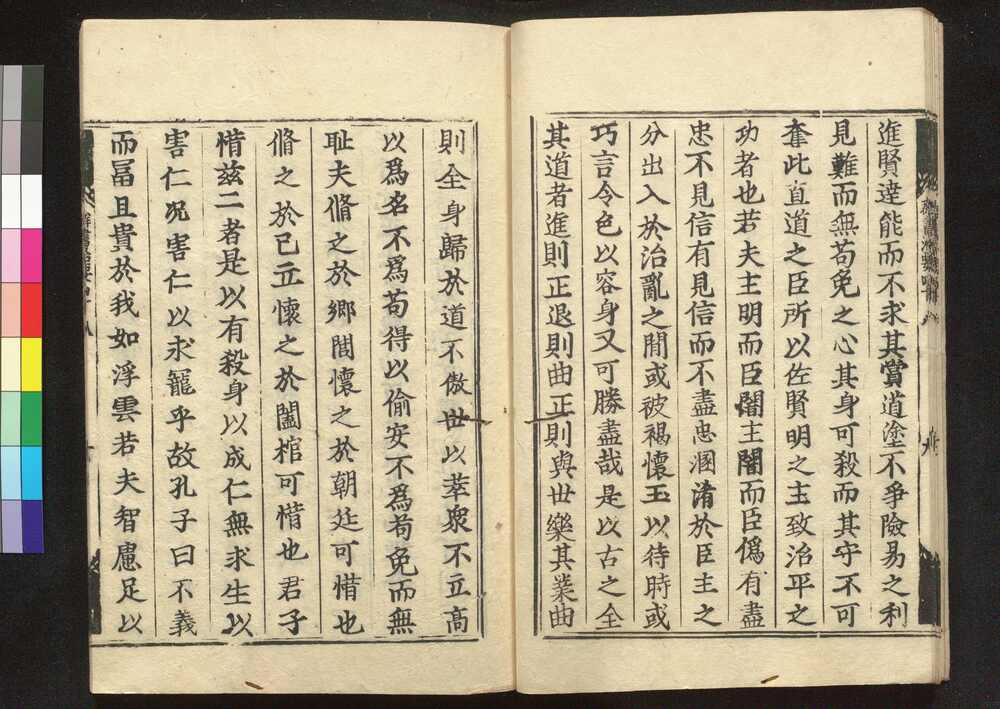 進賢達能而不求其賞道塗不爭險易之利
見難而無苟免之心其身可殺而其守不可
奪此直道之臣所以佐賢明之主致治平之
功者也若夫主明而臣闇主闇而臣僞有盡
忠不見信有見信而不盡忠溷淆於臣主之
分出入於治亂之間或被褐懷玉以待時或
巧言令色以容身又可勝盡哉是以古之全
其道者進則正退則曲正則與世樂其業曲
則全身歸於道不傲世以萃衆不立高
以爲名不爲苟得以偷安不爲苟免而無
耻夫脩之於鄉閭懷之於朝廷可惜也
脩之於己立懷之於闔棺可惜也君子
惜兹二者是以有殺身以成仁無求生以
害仁况害仁以求寵乎故孔子曰不義
而冨且貴於我如浮雲若夫智慮足以
群書治要四十八